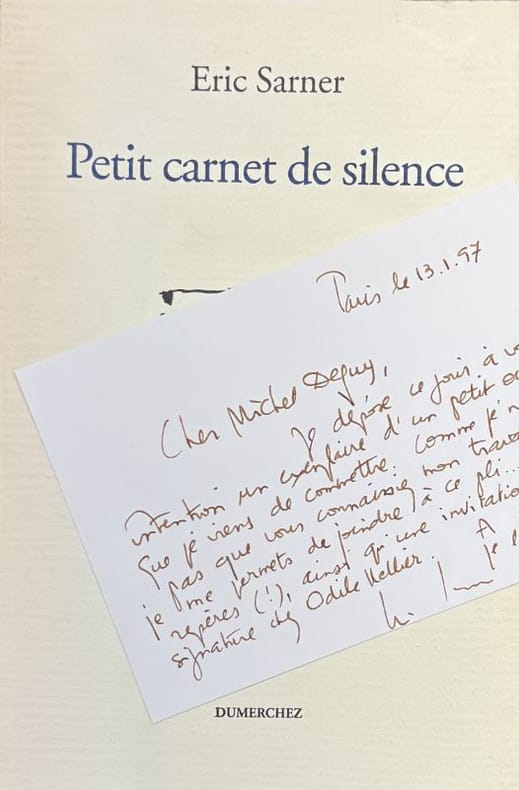 Eric Sarner
Petit carnet de silence
Paris le 13.1.97
Cher Michel Deguy,
Je dépose ce jour à
intention un exemplaire d'un petit
que je viens de commettre. Comme je n
pas que vous connaissiez mon trava
je me permets de joindre à ce pli...
repères (!), ainsi qu'une invitatio
signature chez Odile Hellier. A
je
DUMERCHEZ